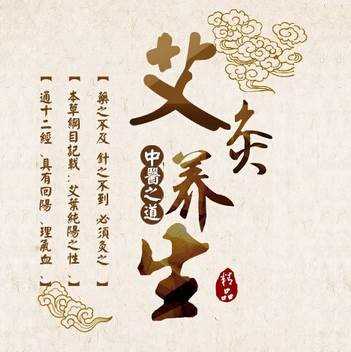 艾灸养生
中醫之道
精品
【藥之不及 針之不到 必須灸之】
【本草綱目記載：艾葉純陽之性】
【通十二經 具有回陽、理氣血】